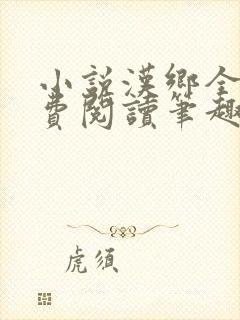 小說漢鄉全
費閱讀筆趣
虎須